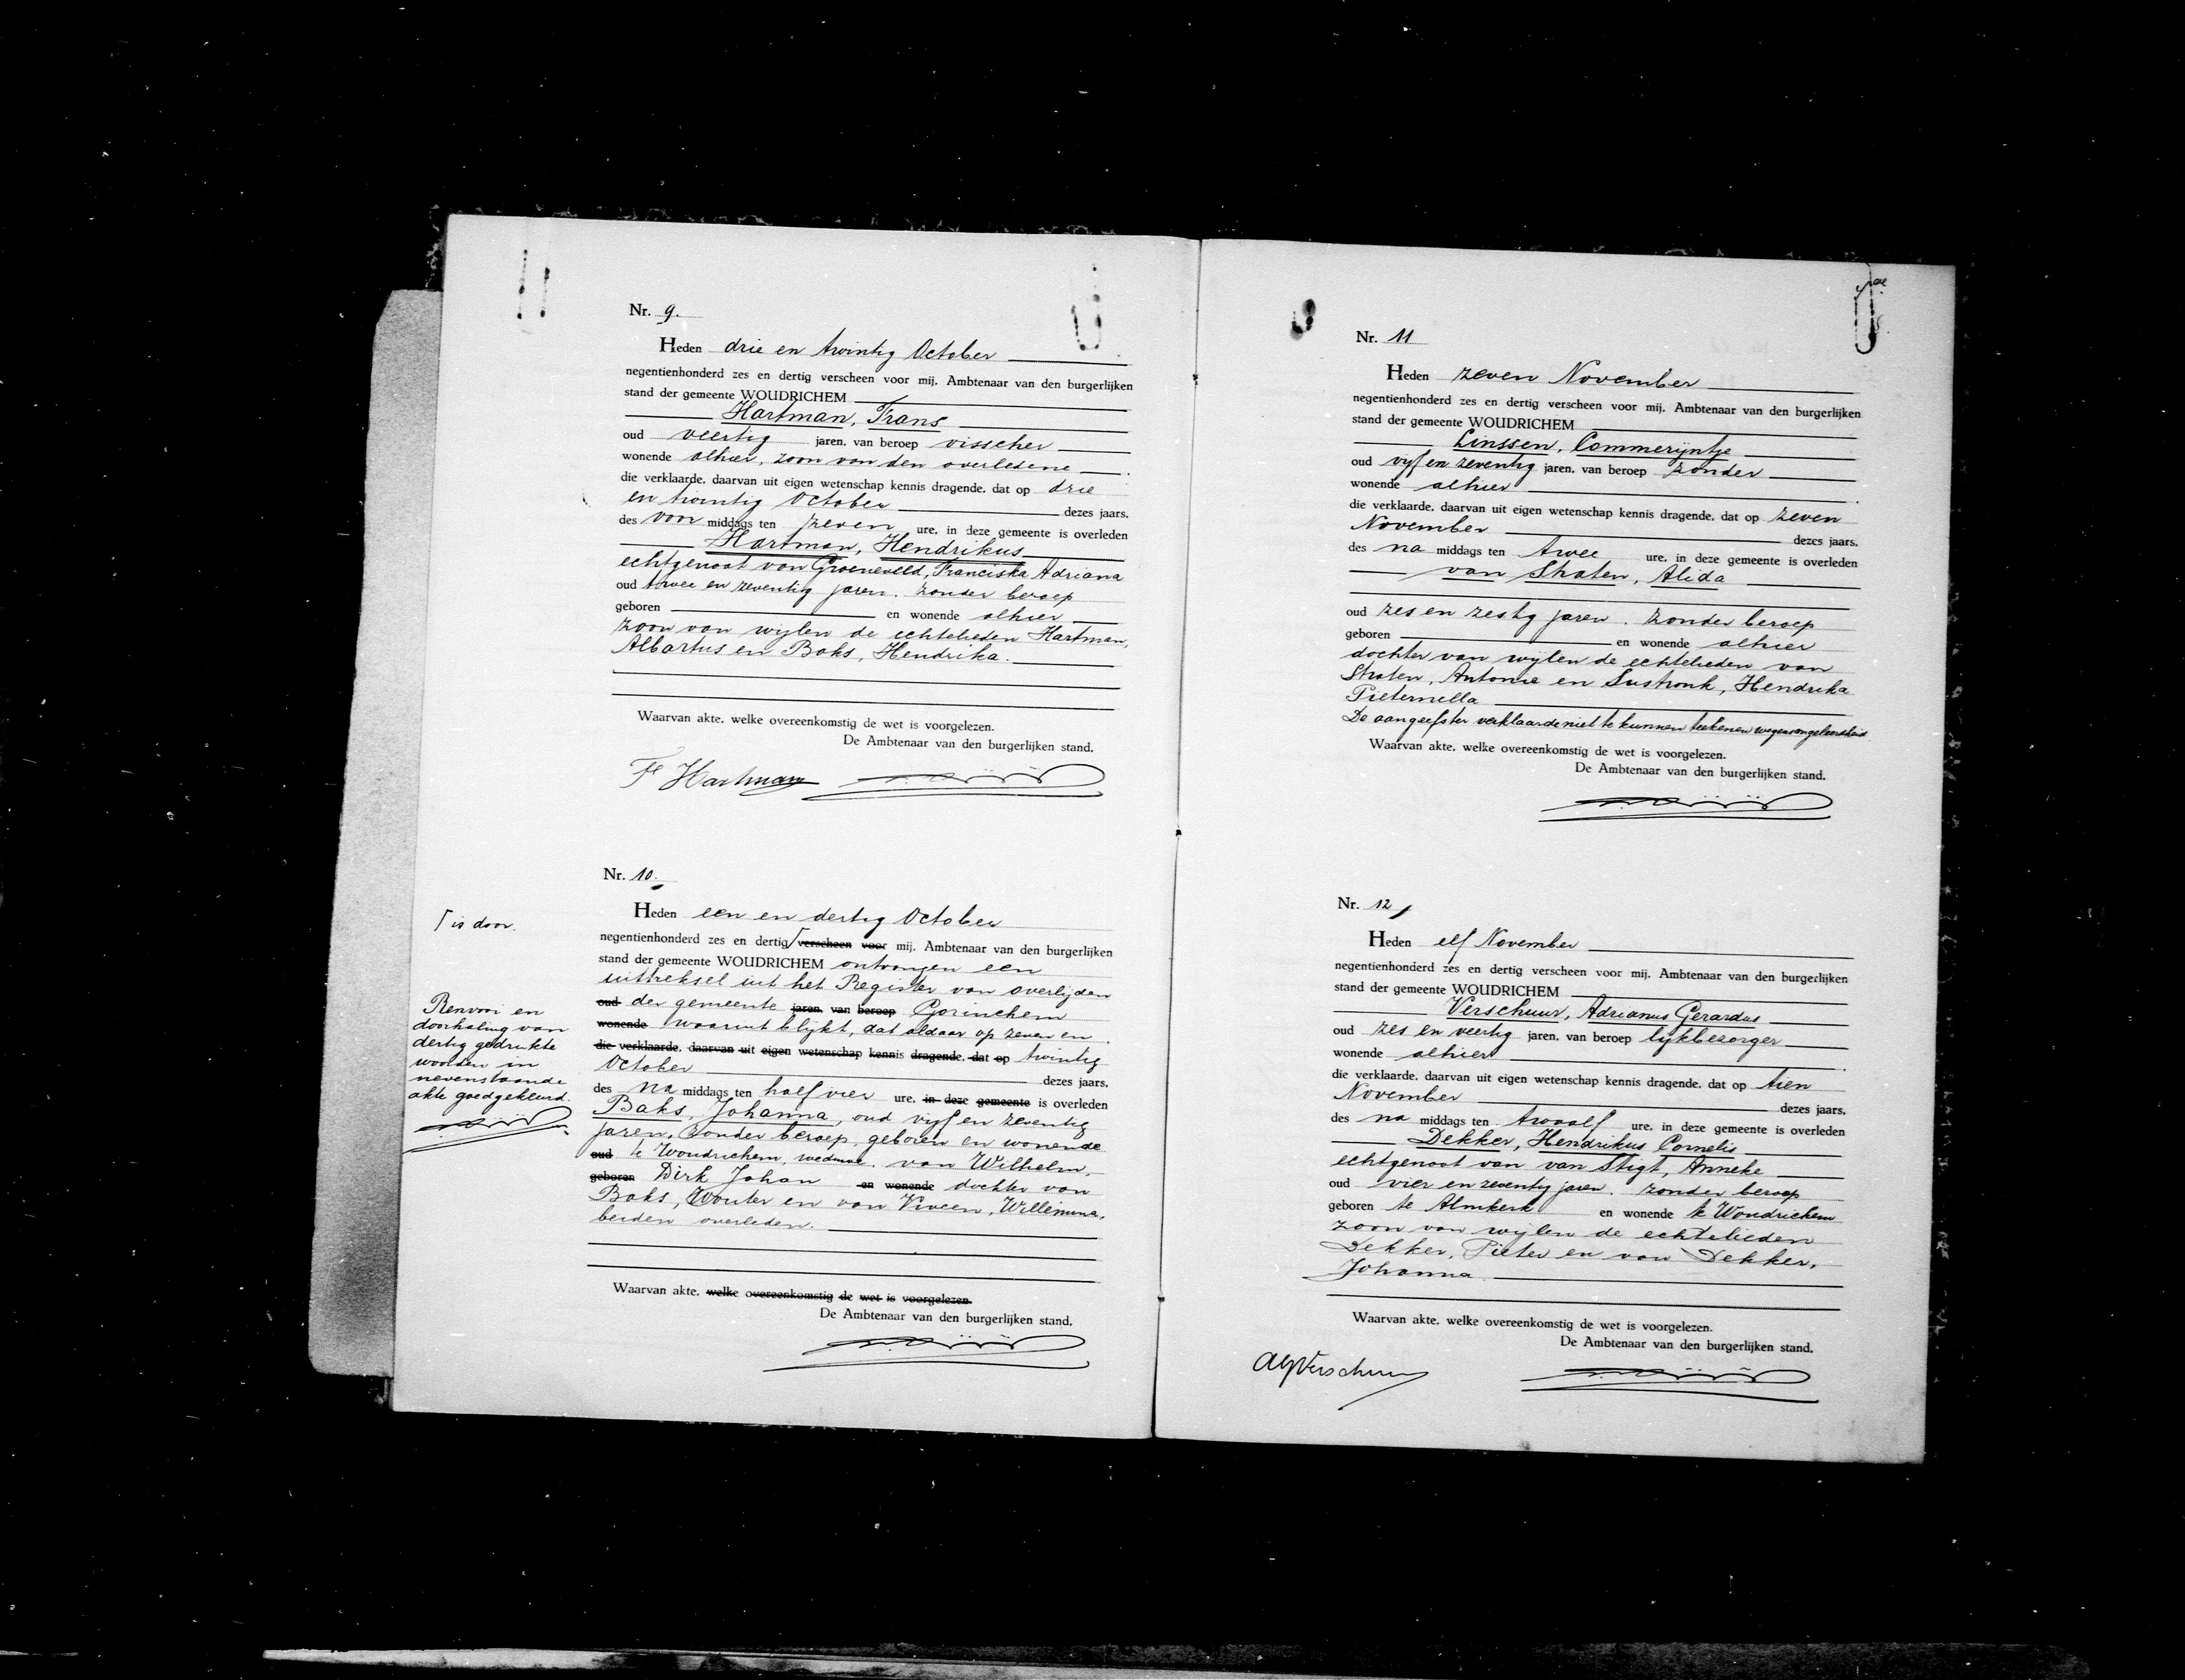 Nr. 9.
Heden drie en twintig October
negentienhonderd zes en dertig verscheen voor mij, Ambtenaar van den burgerlijken
stand der gemeente WOUDRICHEM
Hartman, Frans
oud veertig jaren, van beroep visscher
wonende alhier, zoon van den overledene
die verklaarde, daarvan uit eigen wetenschap kennis dragende, dat op drie
en twintig October dezes jaars,
des voor middags ten zeven ure, in deze gemeente is overleden
Hartman, Hendrikus
echtgenoot van Groeneveld, Franciska Adriana
oud twee en zeventig jaren, zonder beroep
geboren en wonende alhier
zoon van wijlen de echtelieden Hartman,
Albartus en Boks, Hendrika.
Waarvan akte, welke overeenkomstig de wet is voorgelezen.
De Ambtenaar van den burgerlijken stand,
Fs Hartman
Nr. 10.
Heden een en dertig October
negentienhonderd zes en dertig verscheen voor mij, Ambtenaar van den burgerlijken
stand der gemeente WOUDRICHEM ontvangen een
uittreksel uit het Register van overlijden
oud der gemeente jaren, van beroep Gorinchem
wonende waaruit blijkt, dat aldaar op zeven en
die verklaarde, daarvan uit eigen wetenschap kennis dragende, dat op twintig
October dezes jaars,
des na middags ten half vier ure, in deze gemeente is overleden
Baks, Johanna, oud vijf en zeventig
jaren, zonder beroep, geboren en wonende
oud te Woudrichem, weduwe van Wilhelm,
geboren Dirk Johan en wonende dochter van
Boks, Wouter en van Viveen, Willemina,
beiden overleden.
Waarvan akte, welke overeenkomstig de wet is voorgelezen.
De Ambtenaar van den burgerlijken stand,
is door.
Renvooi en
doorhaling van
dertig gedrukte
woorden in
nevenstaande
akte goedgekeurd.
Nr. 11
Heden zeven November
negentienhonderd zes en dertig verscheen voor mij, Ambtenaar van den burgerlijken
stand der gemeente WOUDRICHEM
Linssen, Commerijntje
oud vijf en zeventig jaren, van beroep zonder
wonende alhier
die verklaarde, daarvan uit eigen wetenschap kennis dragende, dat op zeven
November dezes jaars,
des na middags ten twee ure, in deze gemeente is overleden
van Straten, Alida
oud zes en zestig jaren, zonder beroep
geboren en wonende alhier
dochter van wijlen de echtelieden van
Straten, Antonie en Sustronk, Hendrika
Pieternella
De aangeefster verklaarde niet te kunnen teekenen wegens ongeleerdheid
Waarvan akte, welke overeenkomstig de wet is voorgelezen.
De Ambtenaar van den burgerlijken stand,
Nr. 12
Heden elf November
negentienhonderd zes en dertig verscheen voor mij, Ambtenaar van den burgerlijken
stand der gemeente WOUDRICHEM
Verschuur, Adrianus Gerardus
oud zes en veertig jaren, van beroep lijkbezorger
wonende alhier
die verklaarde, daarvan uit eigen wetenschap kennis dragende, dat op tien
November dezes jaars,
des na middags ten twaalf ure, in deze gemeente is overleden
Dekker, Hendrikus Cornelis
echtgenoot van van Stigt, Anneke
oud vier en zeventig jaren, zonder beroep
geboren te Almkerk en wonende te Woudrichem
zoon van wijlen de echtelieden
Dekker, Pieter en van Dekker,
Johanna.
Waarvan akte, welke overeenkomstig de wet is voorgelezen.
De Ambtenaar van den burgerlijken stand,
AGVerschuur